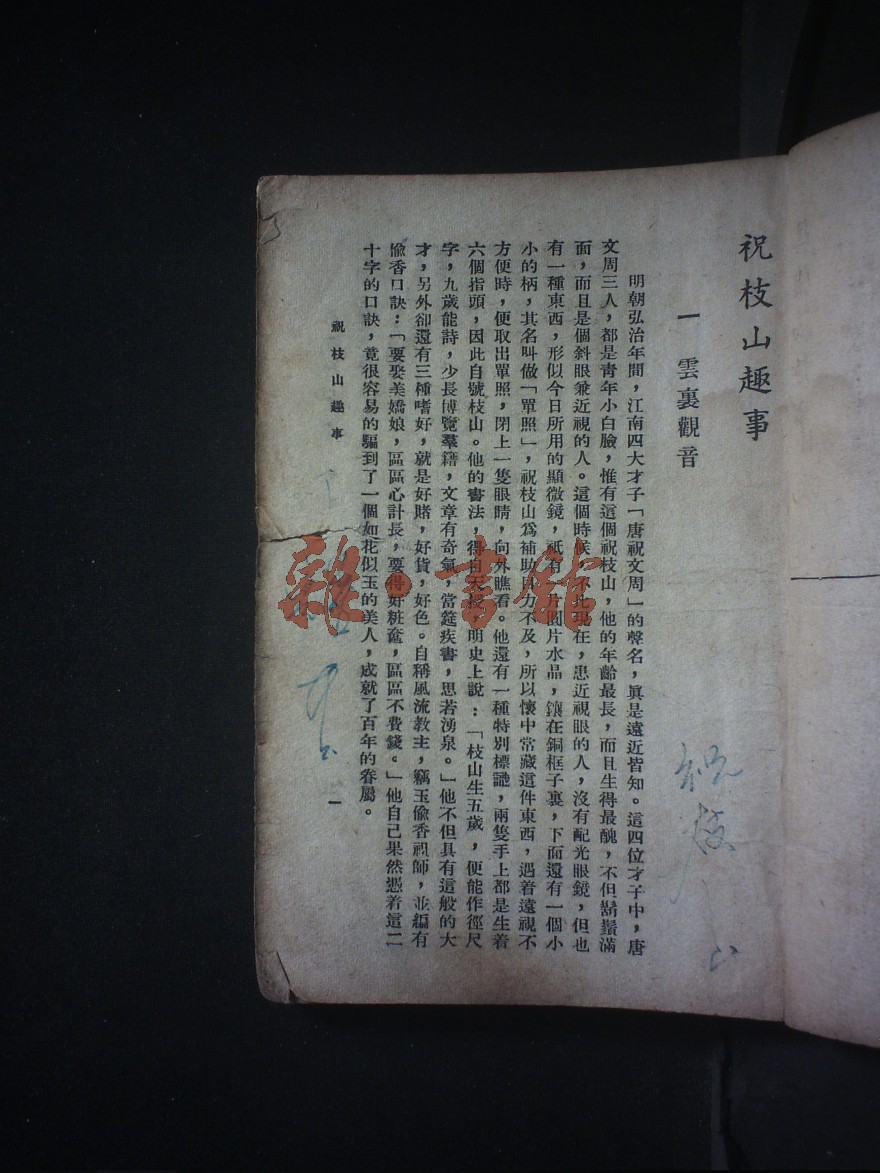 祝枝山趣事
一 雲裏觀音
明朝弘治年間，江南四大才子「唐祝文周」的聲名，眞是遠近皆知。這四位才子中，唐
文周三人，都是靑年小白臉，惟有這個祝枝山，他的年齡最長，而且生得最醜，不但鬍鬚滿
面，而且是個斜眼兼近視的人。這個時候，不比現在，患近視眼的人，沒有配光眼鏡，但也
有一種東西，形似今日所用的顯微鏡，祇有一片圓片水晶，鑲在銅框子裏，下面還有一個小
小的柄，其名叫做「單照」，祝枝山爲補助目力不及，所以懷中常藏這件東西，遇着遠視不
方便時，便取出單照，閉上一隻眼睛，向外瞧看。他還有一種特別標識，兩隻手上都是生着
六個指頭，因此自號枝山。他的書法，得自天授，明史上說：「枝山生五歲，便能作徑尺
字，九歲能詩，少長博覽羣籍，文章有奇氣，當筵疾書，思若湧泉。」他不但具有這般的大
才，另外卻還有三種嗜好，就是好賭，好貨，好色。自稱風流敎主，竊玉偸香祖師，並編有
偸香口訣：「要娶美嬌娘，區區心計長，要得好粧奩，區區不費錢。」他自己果然憑着這二
十字的口訣，竟很容易的騙到了一個如花似玉的美人，成就了百年的眷屬。
祝枝山趣事
一
雜·書館
祝枝山